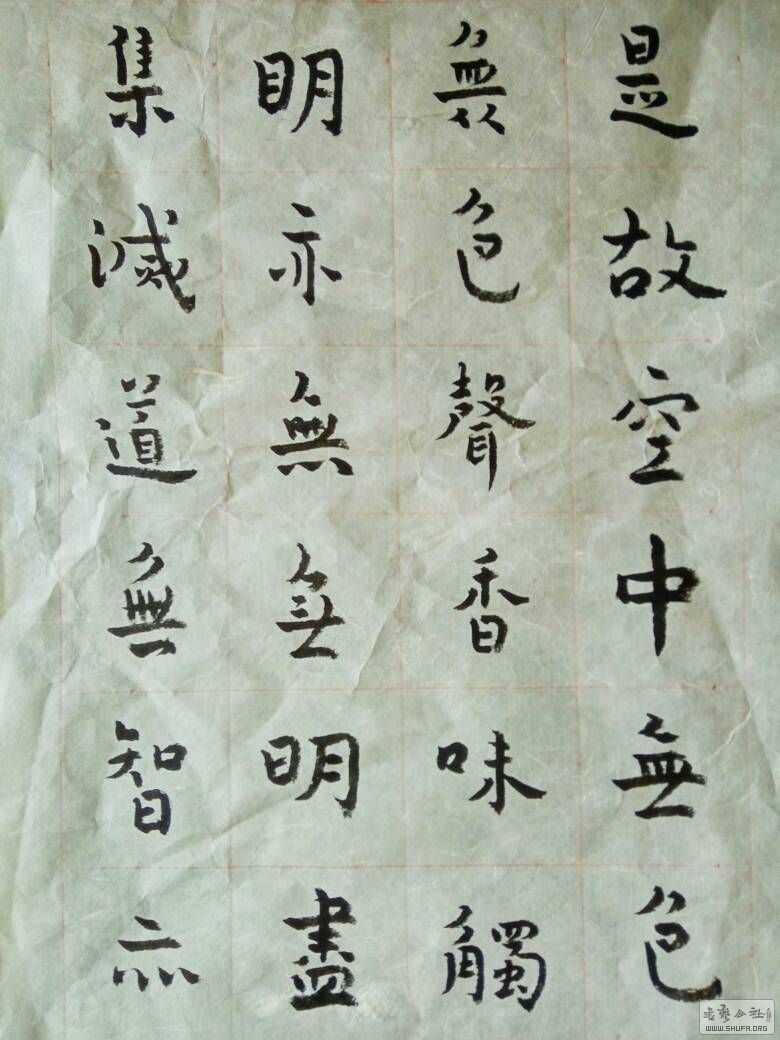 是故空中無色
無色聲香味觸
眀亦無無明盡
集滅道無智亦
書藝公社
WWW.SHUFA.ORG